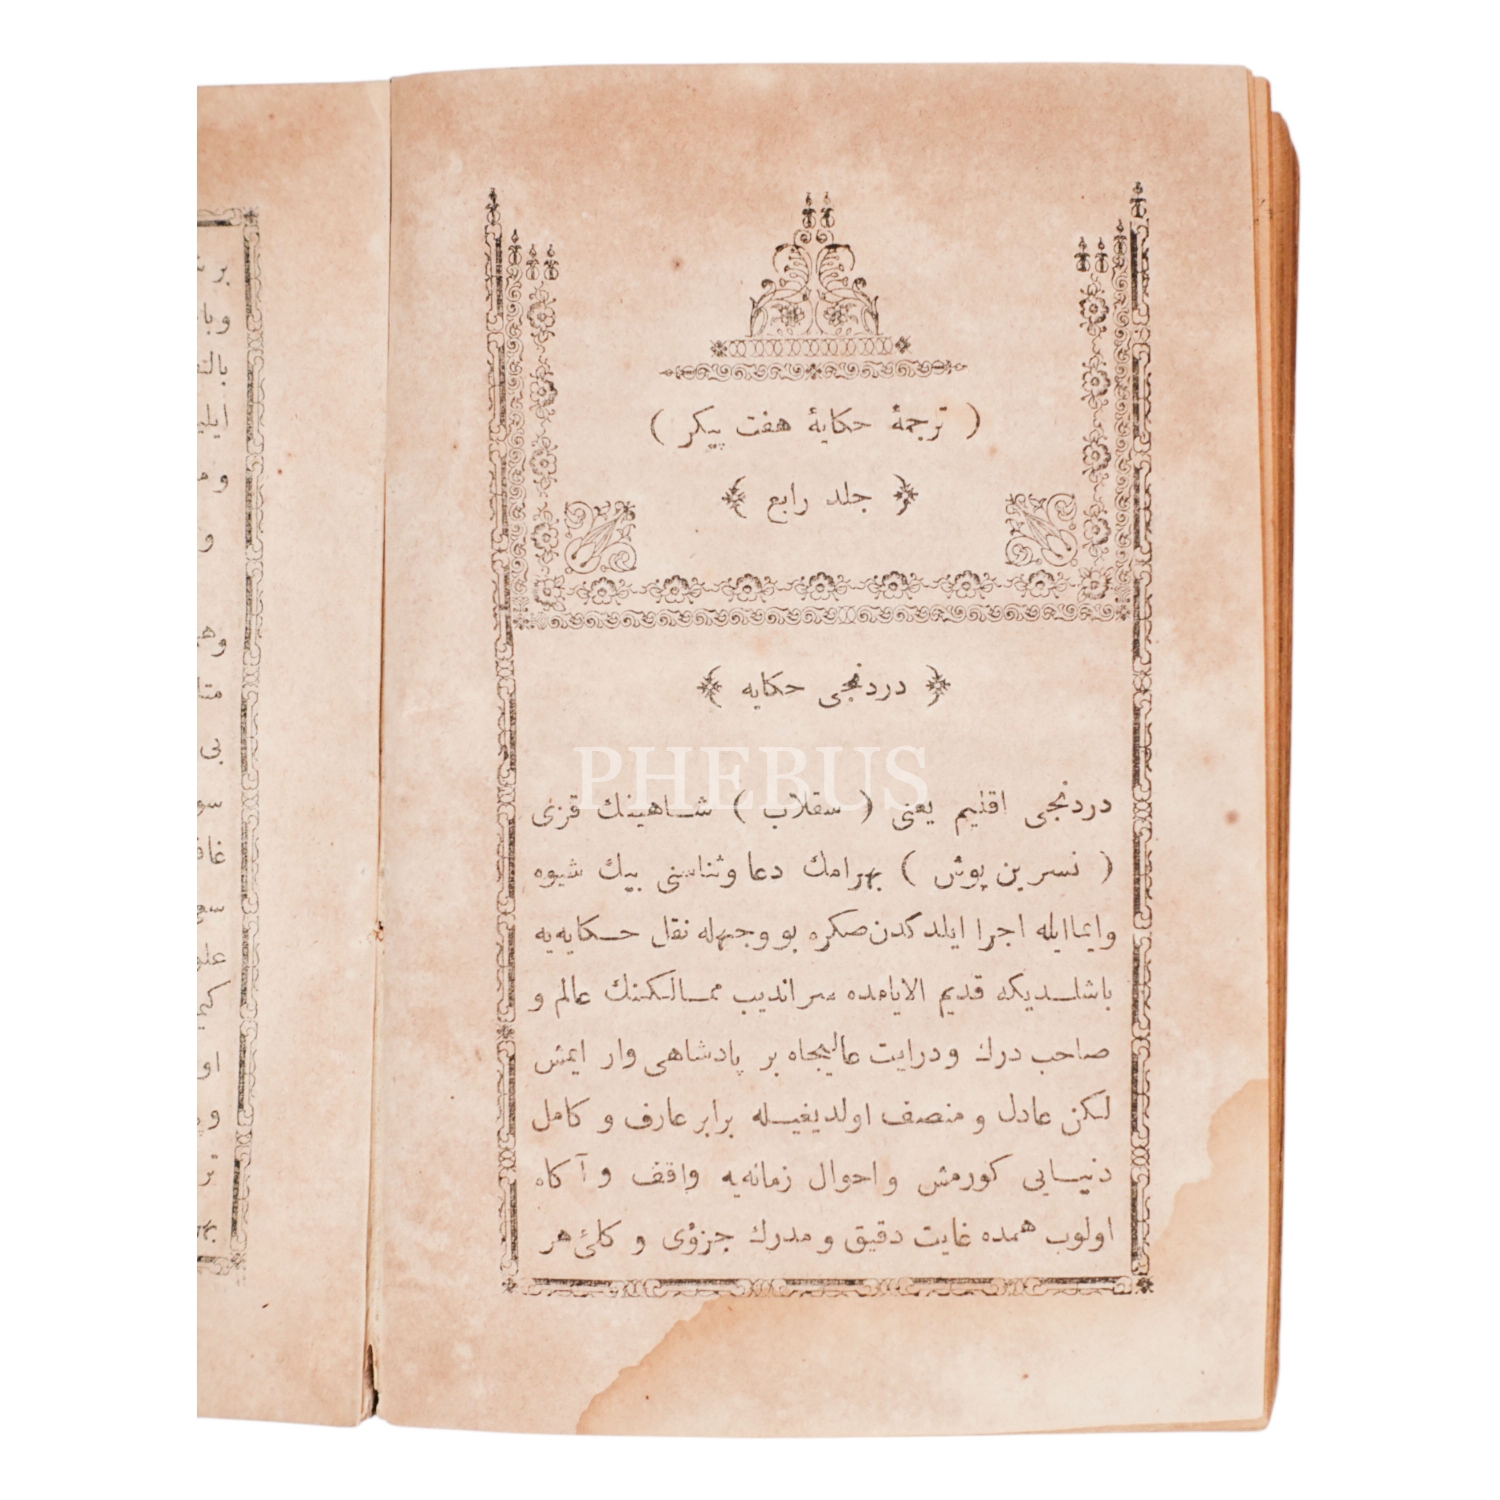 ( ترجمۀ حکایۀ هفت پیکر )
﴿ جلد رابع ﴾
﴿ دردنجی حکایه ﴾
PHEBUS
دردنجی اقلیم یعنی ( سقلاب ) شاهینك قزی
( نسرین پوش ) بهرامك دعا وثناسنی بیك شیوه
وایماایله اجرا ایلدکدن صکره بو وجهله نقل حکایه‌یه
باشلدیکه قدیم الایامده سراندیب ممالکنك عالم و
صاحب درك ودرایت عالیجاه بر پادشاهی وار ایمش
لکن عادل و منصف اولدیغیله برابر عارف و کامل
دنیایی کورمش واحوال زمانه‌یه واقف و آکاه
اولوب همده غایت دقیق و مدرك جزؤی و کلئ هر